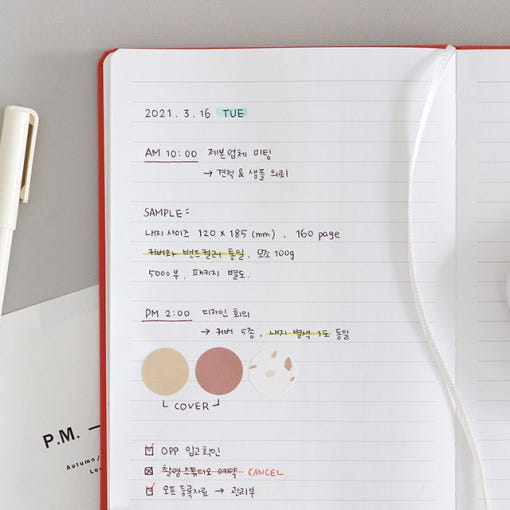 2021. 3. 16 TUE
AM 10:00 제본업체 미팅
→ 견적 & 샘플 의뢰
SAMPLE:
내지 사이즈 120 x 185 (mm) , 160 page
커버와 밴드컬러 통일, 모조 100g
5000부, 패키지 별도.
PM 2:00 디자인 회의
→ 커버 5종, 내지 별색 1도 통일
COVER
OPP 입고확인
촬영 스튜디오 예약 CANCEL
오픈 등록자료 → 관리부
P.M. —
Autumn/
Lo